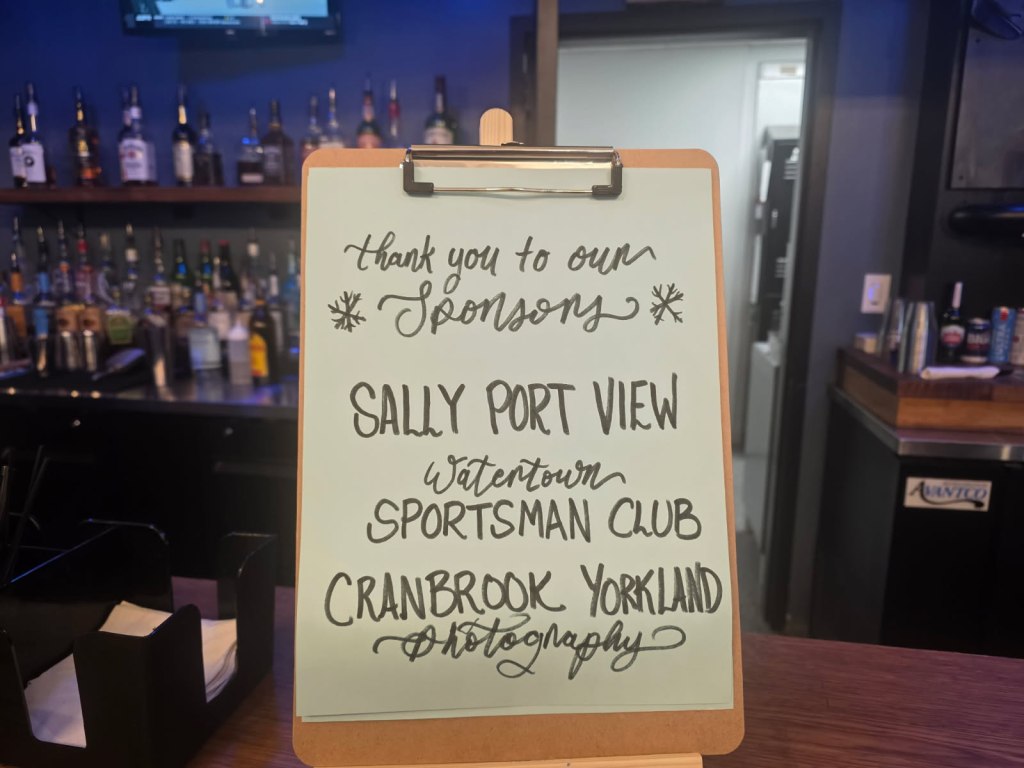 thank you to our
Sponsors
SALLY PORT VIEW
Watertown
SPORTSMAN CLUB
CRANBROOK YORKLAND
photography
AVANTCO